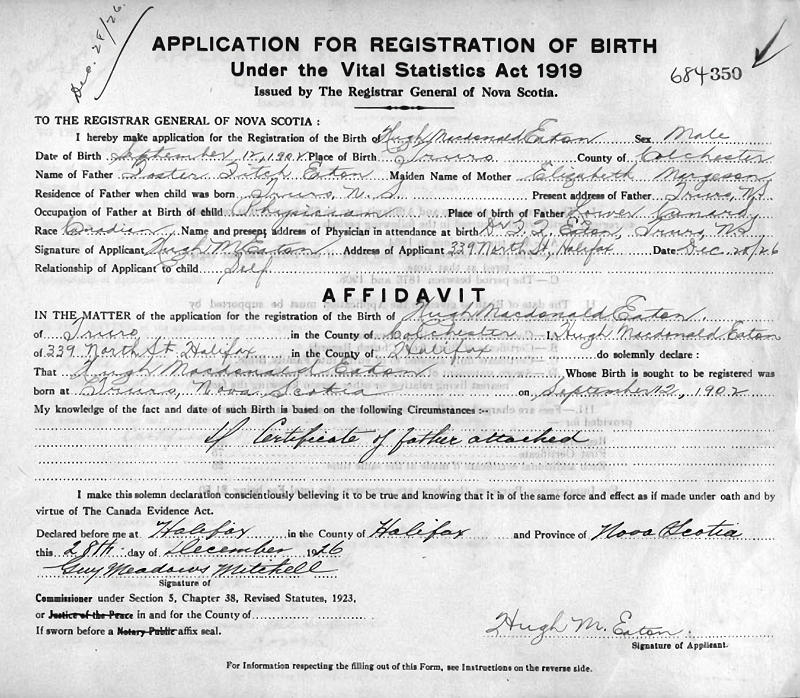 Dec. 28/26.
APPLICATION FOR REGISTRATION OF BIRTH
Under the Vital Statistics Act 1919
684350
Issued by The Registrar General of Nova Scotia.
TO THE REGISTRAR GENERAL OF NOVA SCOTIA :
I hereby make application for the Registration of the Birth of Hugh Macdonald Eaton Sex Male
Date of Birth September 12, 1902 Place of Birth Truro County of Colchester
Name of Father Foster Fitch Eaton Maiden Name of Mother Elizabeth Margeson
Residence of Father when child was born Truro, N.S. Present address of Father Truro, N.S.
Occupation of Father at Birth of child Physician Place of birth of Father Lower Canard,
Race Canadian Name and present address of Physician in attendance at birth Dr F. F. Eaton, Truro, N.S.
Signature of Applicant Hugh M. Eaton Address of Applicant 339 North St, Halifax Date Dec. 28/26
Relationship of Applicant to child Self
AFFIDAVIT
IN THE MATTER of the application for the registration of the Birth of Hugh Macdonald Eaton.
of Truro in the County of Colchester I, Hugh Macdonald Eaton
of 339 North St. Halifax in the County of Halifax do solemnly declare :
That Hugh Macdonald Eaton Whose Birth is sought to be registered was
born at Truro, Nova Scotia on September 12, 1902
My knowledge of the fact and date of such Birth is based on the following Circumstances :-
Certificate of father attached
I make this solemn declaration conscientiously believing it to be true and knowing that it is of the same force and effect as if made under oath and by
virtue of The Canada Evidence Act.
Declared before me at Halifax in the County of Halifax and Province of Nova Scotia
this 28th day of December 1926
Guy Meadows Mitchell
Signature of
Commissioner under Section 5, Chapter 38, Revised Statutes, 1923,
or Justice of the Peace in and for the County of
If sworn before a Notary Public affix seal.
Hugh M. Eaton.
Signature of Applicant.
For Information respecting the filling out of this Form, see Instructions on the reverse side.